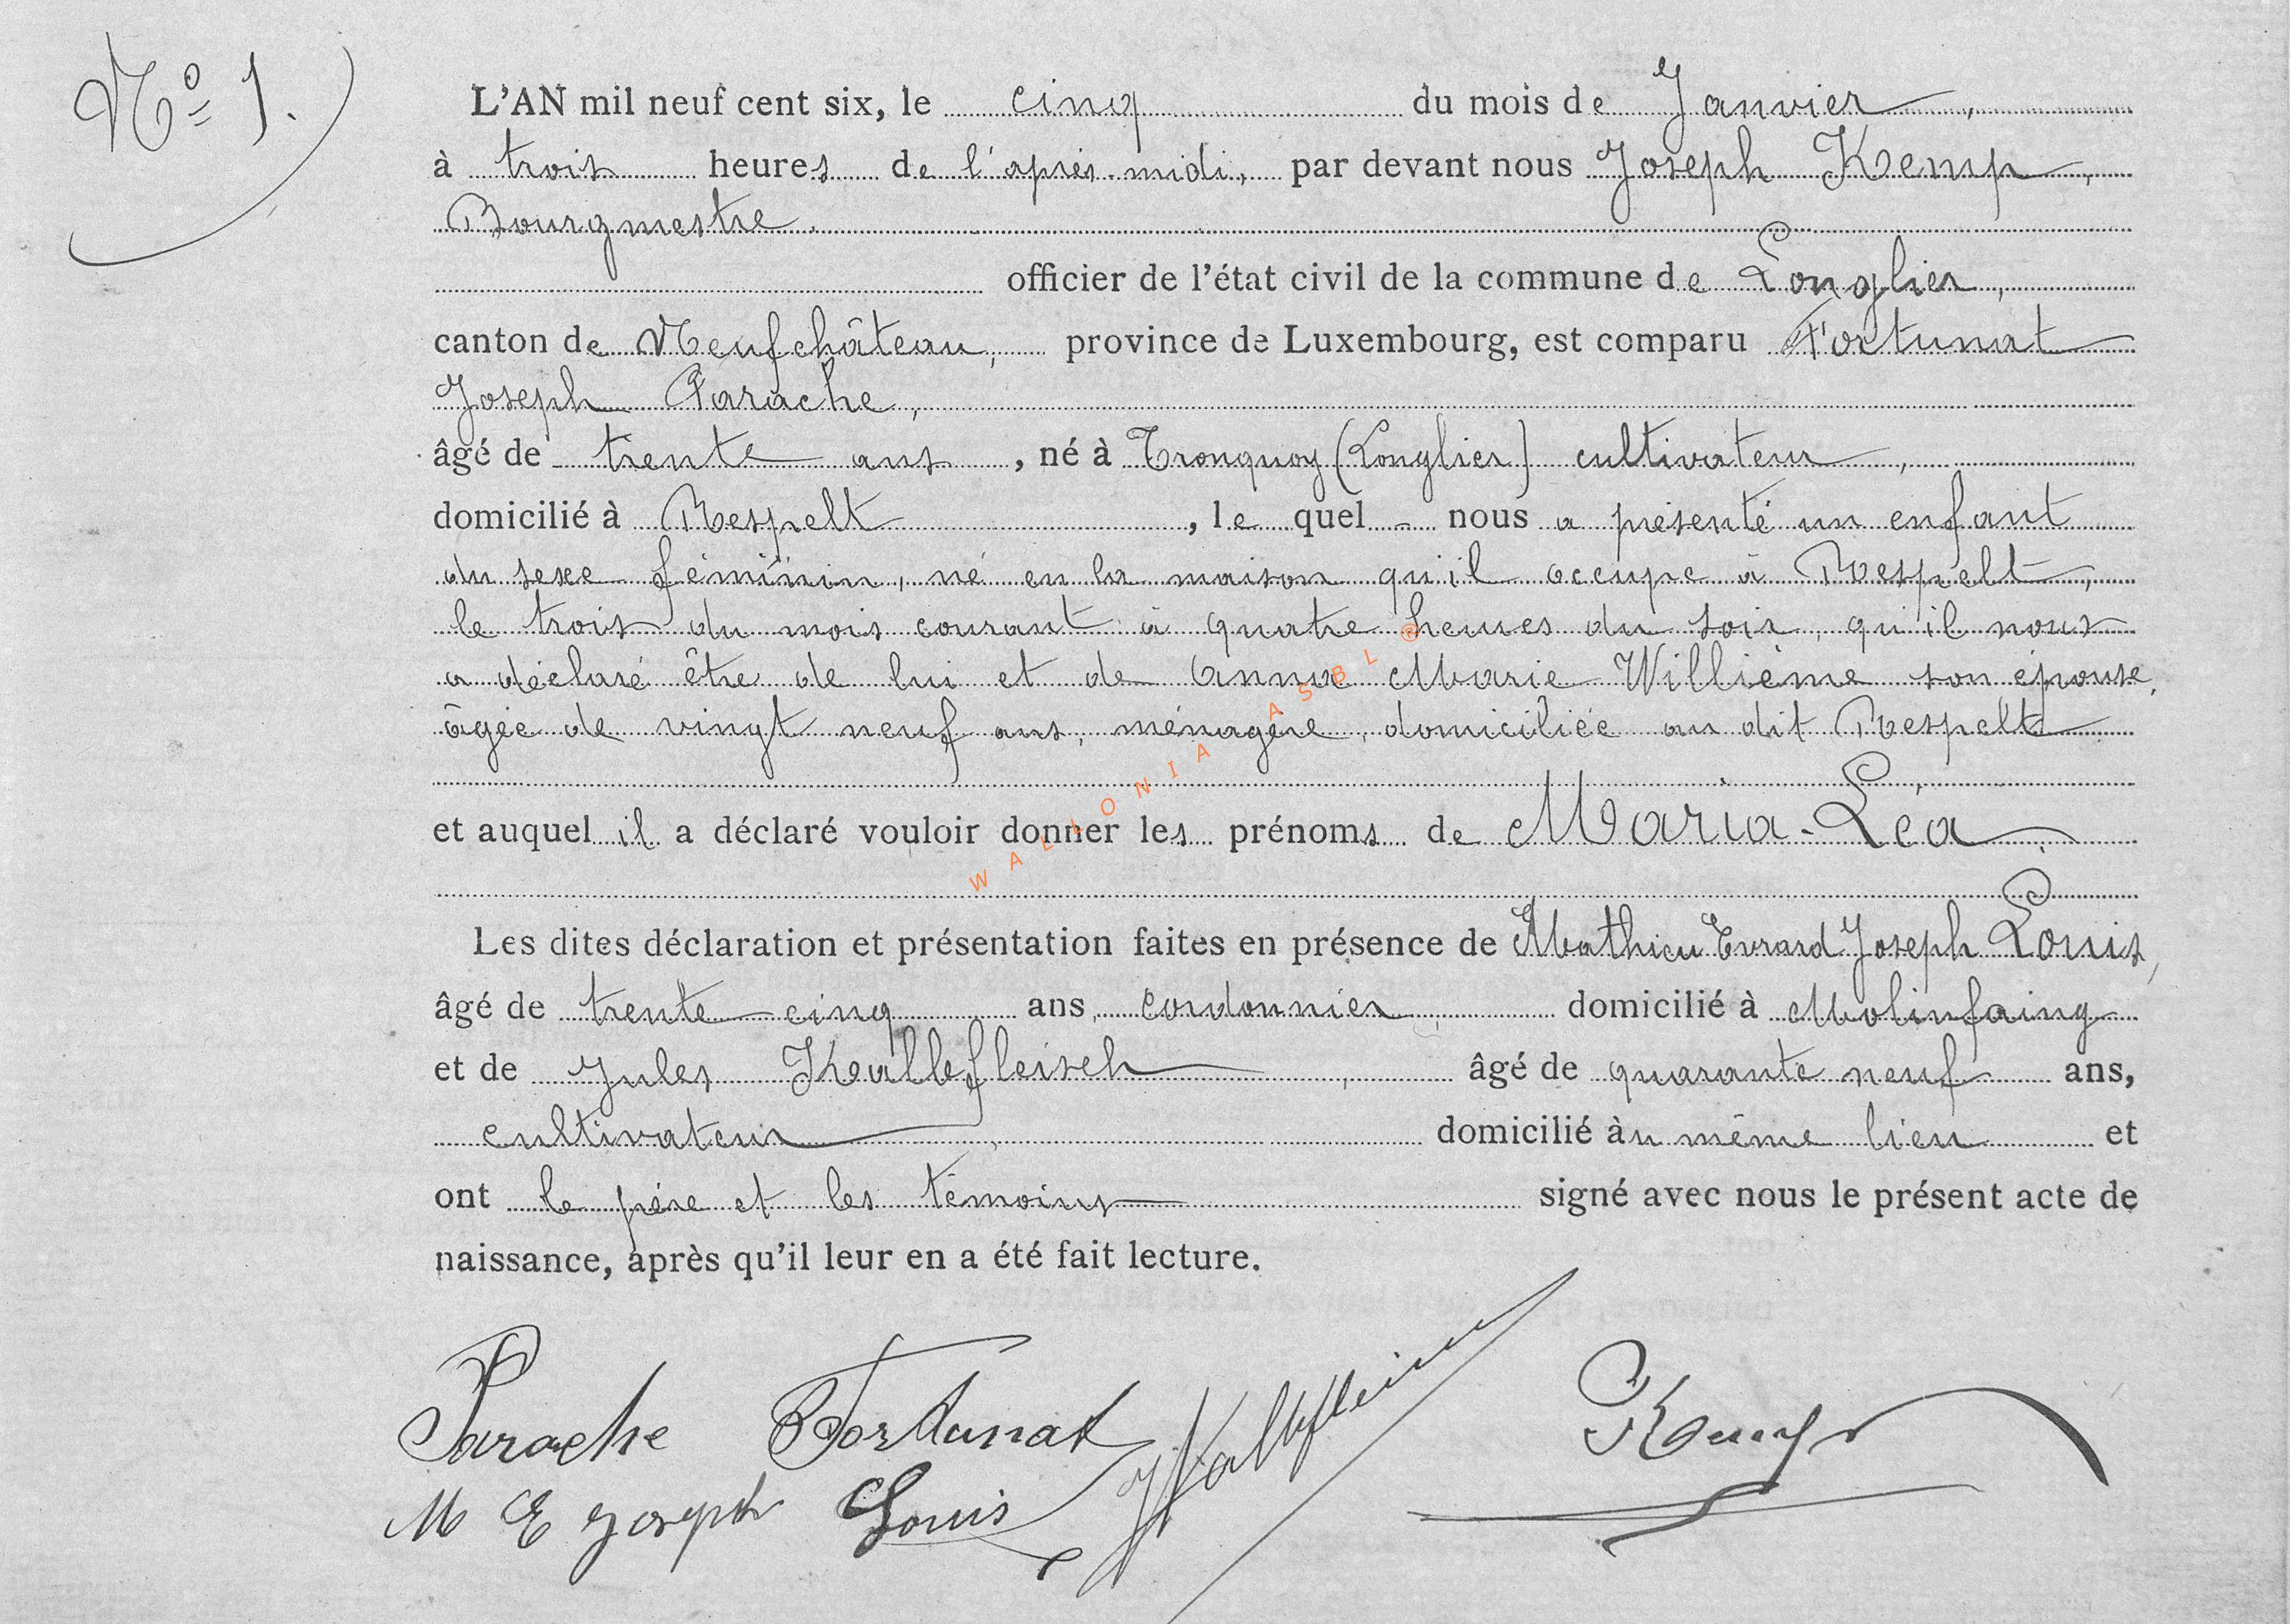 Nº 1.
L'AN mil neuf cent six, le cinq du mois de Janvier,
à trois heures de l'après-midi, par devant nous Joseph Kemp,
Bourgmestre
officier de l'état civil de la commune de Longlier,
canton de Neufchâteau, province de Luxembourg, est comparu Fortunat
Joseph Parache,
âgé de trente ans, né à Tronquoy (Longlier) cultivateur,
domicilié à Respelt, le quel - nous a présenté un enfant
du sexe féminin, né en la maison qu'il occupe à Respelt,
le trois du mois courant à quatre heures du soir, qu'il nous
a déclaré être de lui et de Anna Marie Willième son épouse,
âgée de vingt neuf ans, ménagère, domiciliée au dit Respelt
et auquel il a déclaré vouloir donner les prénoms de Maria-Léa
Les dites déclaration et présentation faites en présence de Mathieu Evrard Joseph Louis,
âgé de trente-cinq ans, cordonnier, domicilié à Molinfaing
et de Jules Kalbfleisch, âgé de quarante neuf ans,
cultivateur, domicilié àu même lieu et
ont le père et les témoins signé avec nous le présent acte de
naissance, après qu'il leur en a été fait lecture.
Parache Fortunat
M E Joseph Louis
J Kalbfleisch
Kemp
WALLONIA ASBL ®